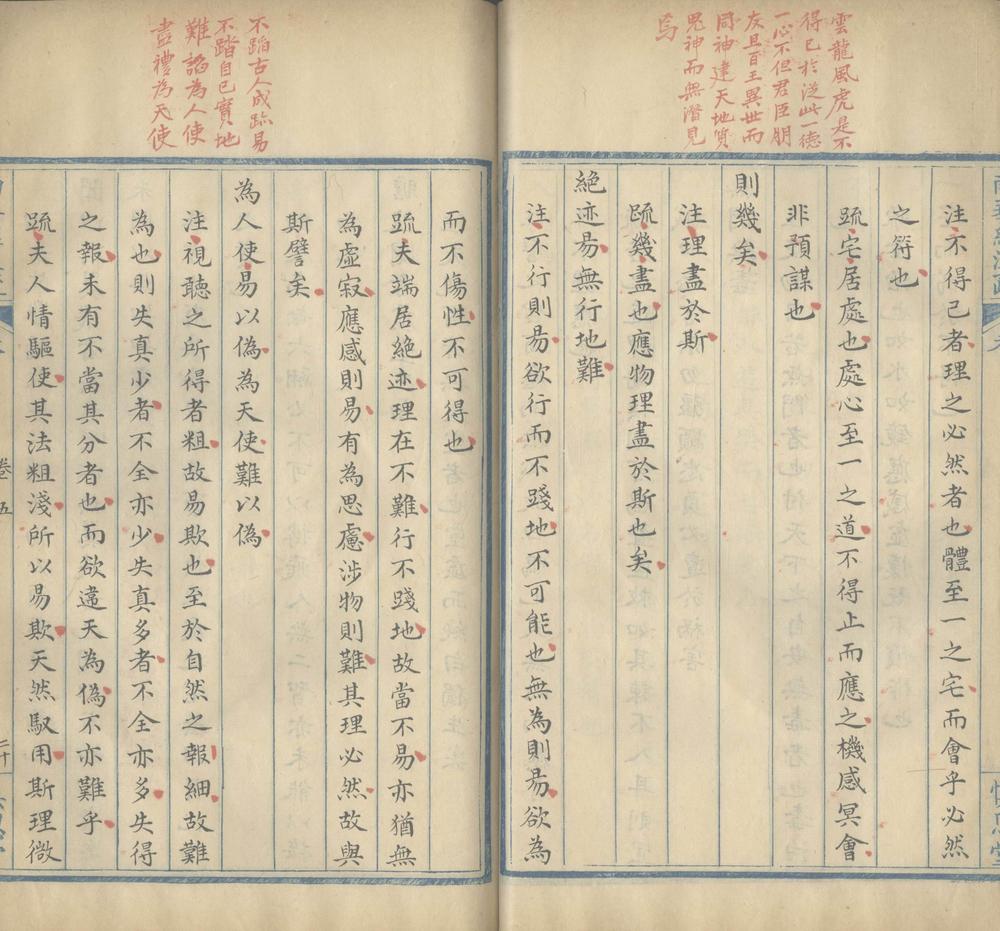 雲龍風虎是不
得已於从此一德
一心不但君臣朋
友且百王異世而
同神建天地質
鬼神而無潛見
焉
注不得已者理之必然者也體至一之宅而會乎必然
之符也
疏宅居處也處心至一之道不得止而應之機感冥會
非預謀也
則幾矣
注理盡於斯
疏幾盡也應物理盡於斯也矣
絶迹易無行地難
注不行則易欲行而不踐地不可能也無為則易欲為
不蹈古人成跡易
不踏自己實地
難諂為人使
盡禮為天使
而不傷性不可得也
疏夫端居絶迹理在不難行不踐地故當不易亦猶無
為虛寂應感則易有為思慮涉物則難其理必然故與
斯譬矣
為人使易以偽為天使難以偽
注視聽之所得者粗故易欺也至於自然之報細故難
為也則失真少者不全亦少失真多者不全亦多失得
之報未有不當其分者也而欲違天為偽不亦難乎
疏夫人情驅使其法粗淺所以易欺天然馭用斯理微
卷五
二十